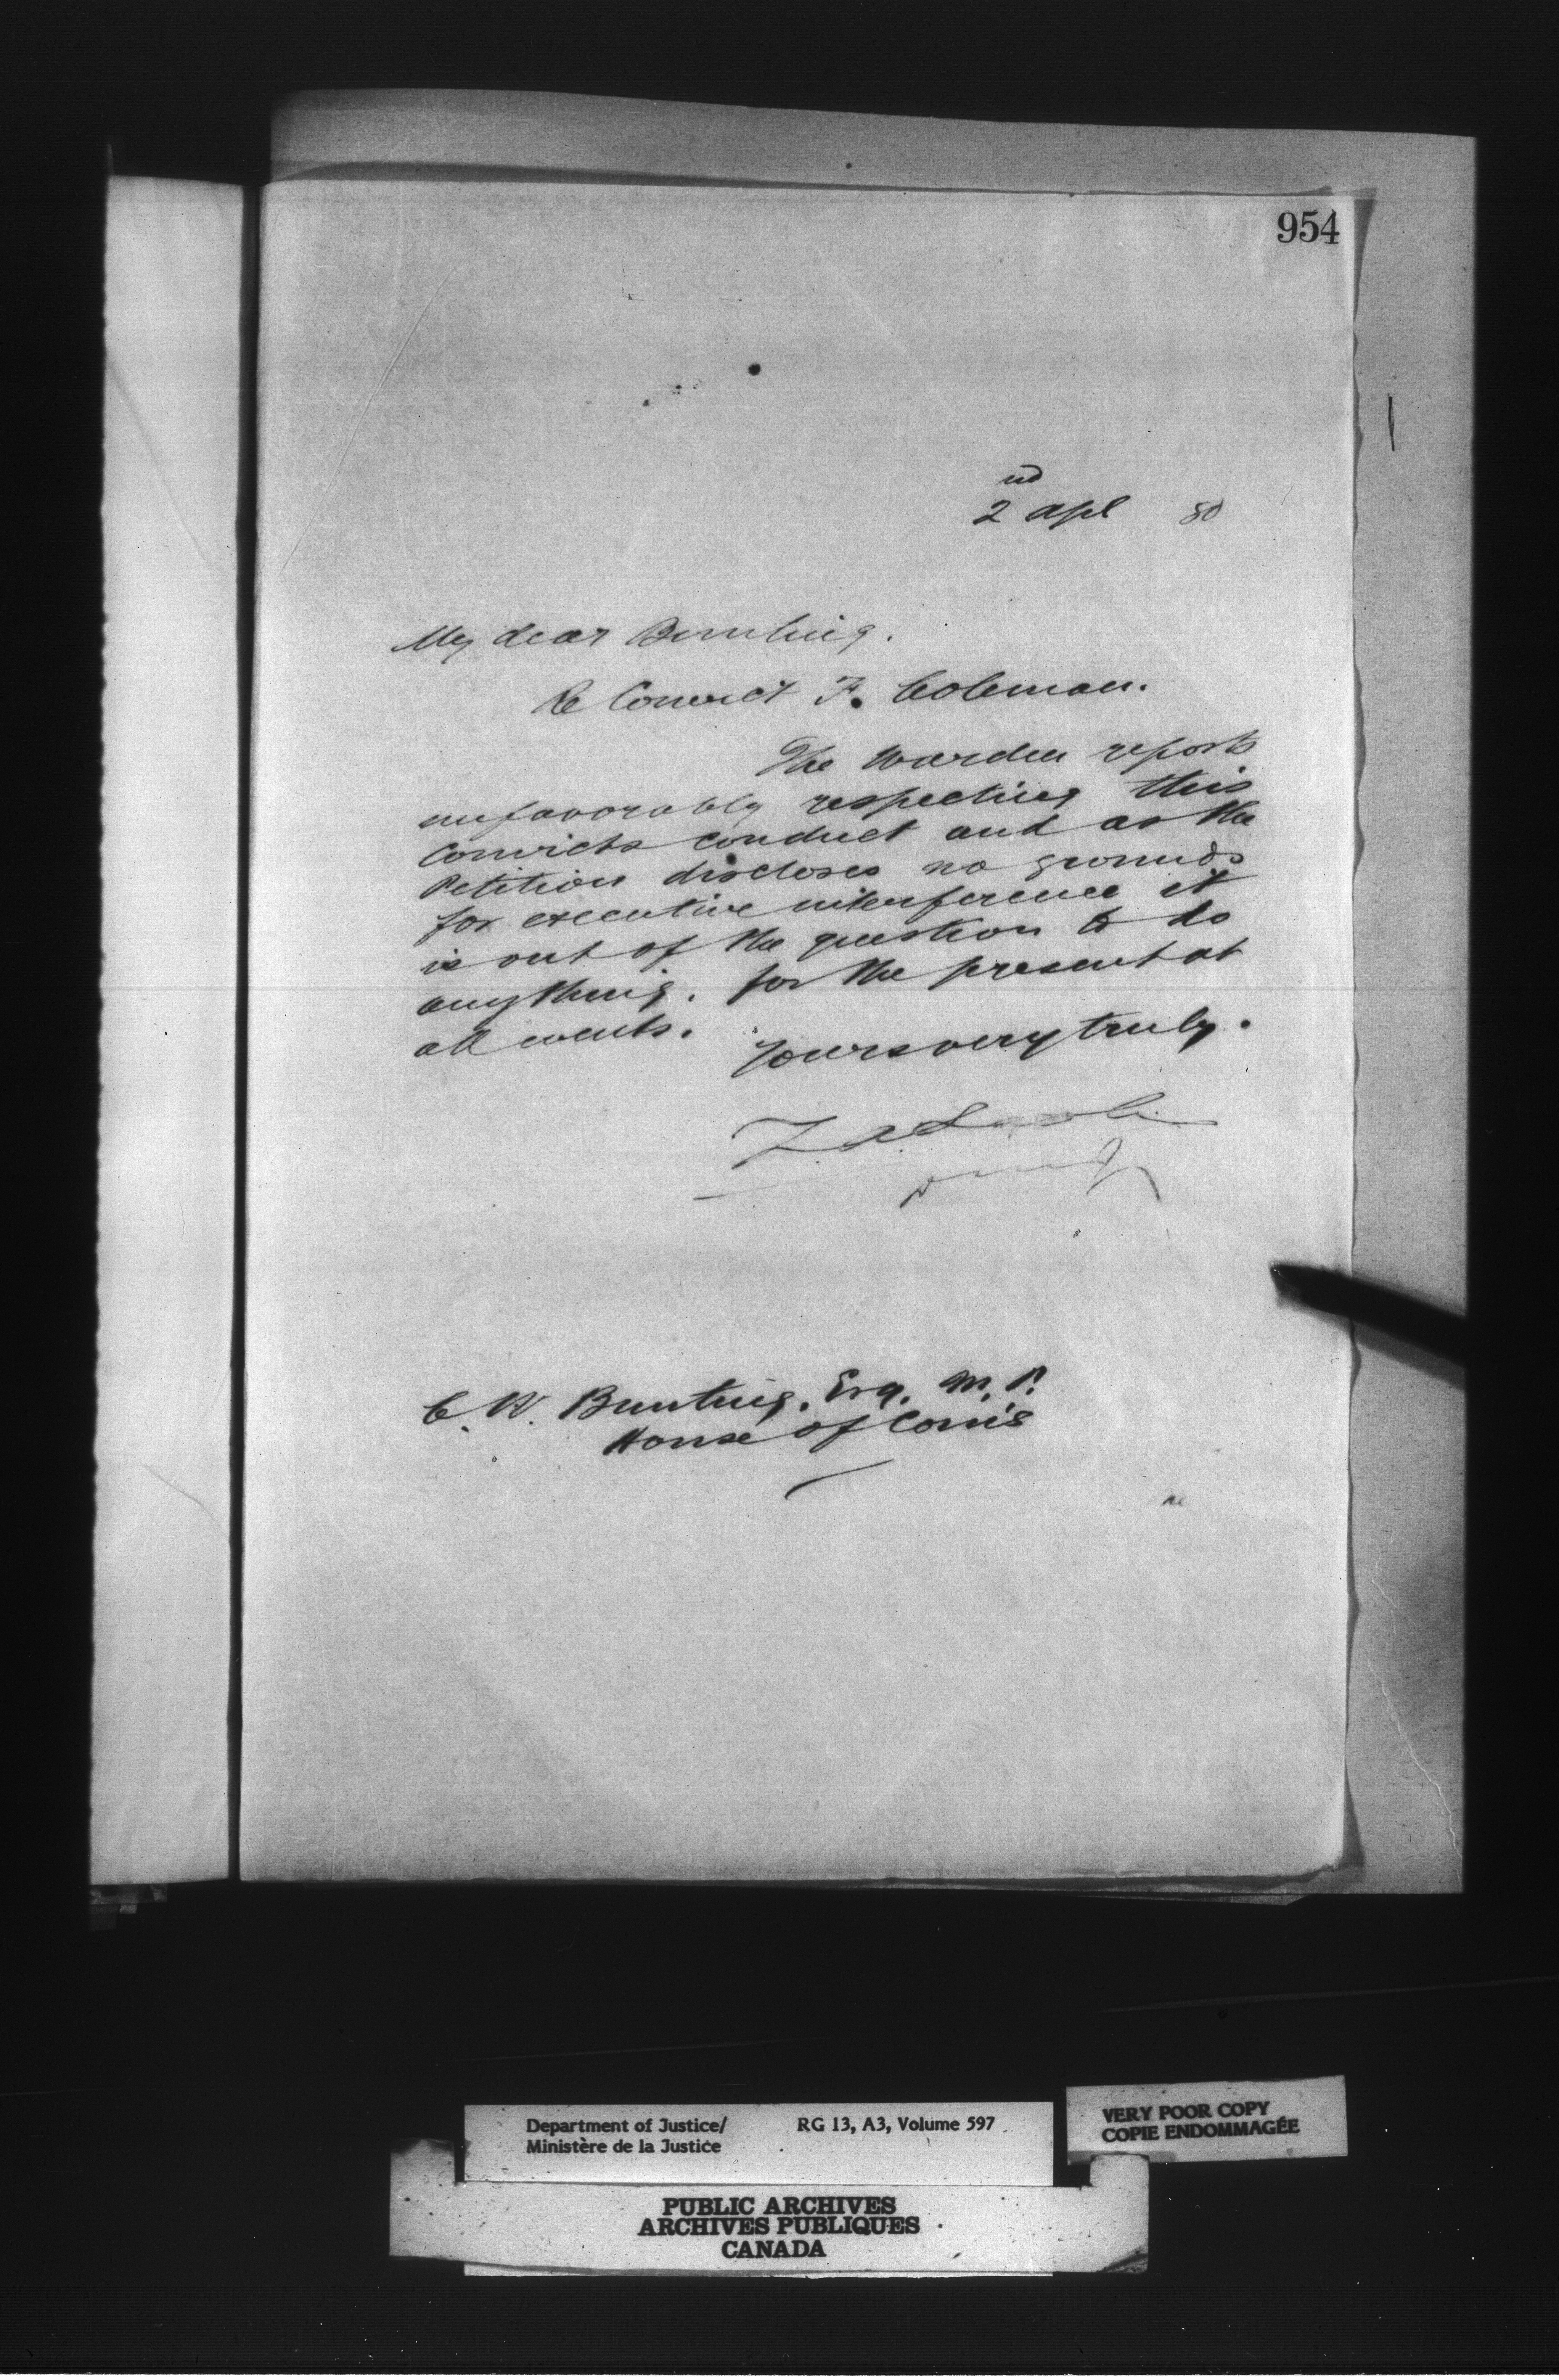 954
2nd Apl 80
My dear Bunting.
Re Convict F. Coleman.
The Warden reports
unfavorably respecting this
Convicts conduct and as the
Petition discloses no grounds
for executive interference it
is out of the question to do
anything. for the present at
all events.
Yours very truly.
Z. A. Lash
C. W. Bunting. Esq. M.P.
House of Com's
Department of Justice/
Ministère de la Justice
RG 13, A3, Volume 597
VERY POOR COPY
COPIE ENDOMMAGÉE
PUBLIC ARCHIVES
ARCHIVES PUBLIQUES
CANADA